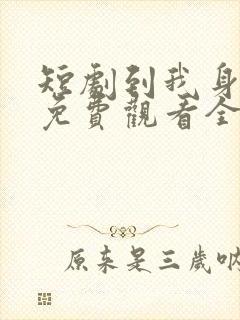 短劇到我身
免費觀看全
原来是三歲呐